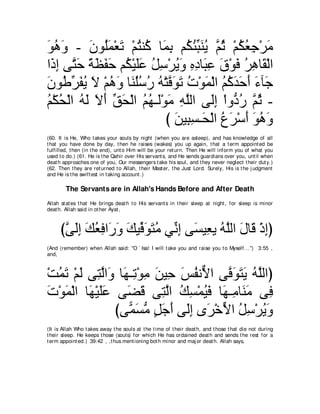 مَرْجِعُكُمْ ثُمَّ يُنَبِّئُكُم بِمَا كُنتُمْ تَعْمَلُونَ - وَهُوَ
الْقَاهِرُ فَوْقَ عِبَادِهِ وَيُرْسِلُ عَلَيْكُم حَفَظَةً حَتَّى إِذَا
جَآءَ أَحَدَكُمُ الْمَوْتُ تَوَفَّتْهُ رُسُلُنَا وَهُمْ لاَ يُفَرِّطُونَ
- ثُمَّ رُدُّواْ إِلَى اللَّهِ مَوْلَـهُمُ الْحَقِّ أَلاَ لَهُ الْحُكْمُ
وَهُوَ أَسْرَعُ الْحَـسِبِينَ )
(60. It is He, Who takes your souls by night (when you are asleep), and has knowledge of all that you have done by day, then he raises (wakes) you up again, that a term appointed be fulfilled, then (in the end), unto Him will be your return. Then He will inform you of what you used to do.) (61. He is the Qahir over His servants, and He sends guardians over you, until when death approaches one of you, Our messengers take his soul, and they never neglect their duty.) (62. Then they are returned to Allah, their Master, the Just Lord. Surely, His is the judgment and He is the swiftest in taking account.)
The Servants are in Allah's Hands Before and After Death
Allah states that He brings death to His servants in their sleep at night, for sleep is minor death. Allah said in other Ayat,
(إِذْ قَالَ اللَّهُ يعِيسَى إِنِّي مُتَوَفِّيكَ وَرَافِعُكَ إِلَىَّ)
(And (remember) when Allah said: "O `Isa! I will take you and raise you to Myself...") 3:55 , and,
(اللَّهُ يَتَوَفَّى الاٌّنفُسَ حِينَ مِوْتِـهَا وَالَّتِى لَمْ تَمُتْ
فِى مَنَامِـهَا فَيُمْسِكُ الَّتِى قَضَى عَلَيْهَا الْمَوْتَ
وَيُرْسِلُ الاٍّخْرَى إِلَى أَجَلٍ مُّسَمًّى)
(It is Allah Who takes away the souls at the time of their death, and those that die not during their sleep. He keeps those (souls) for which He has ordained death and sends the rest for a term appointed.) 39:42 , ,thus mentioning both minor and major death. Allah says,